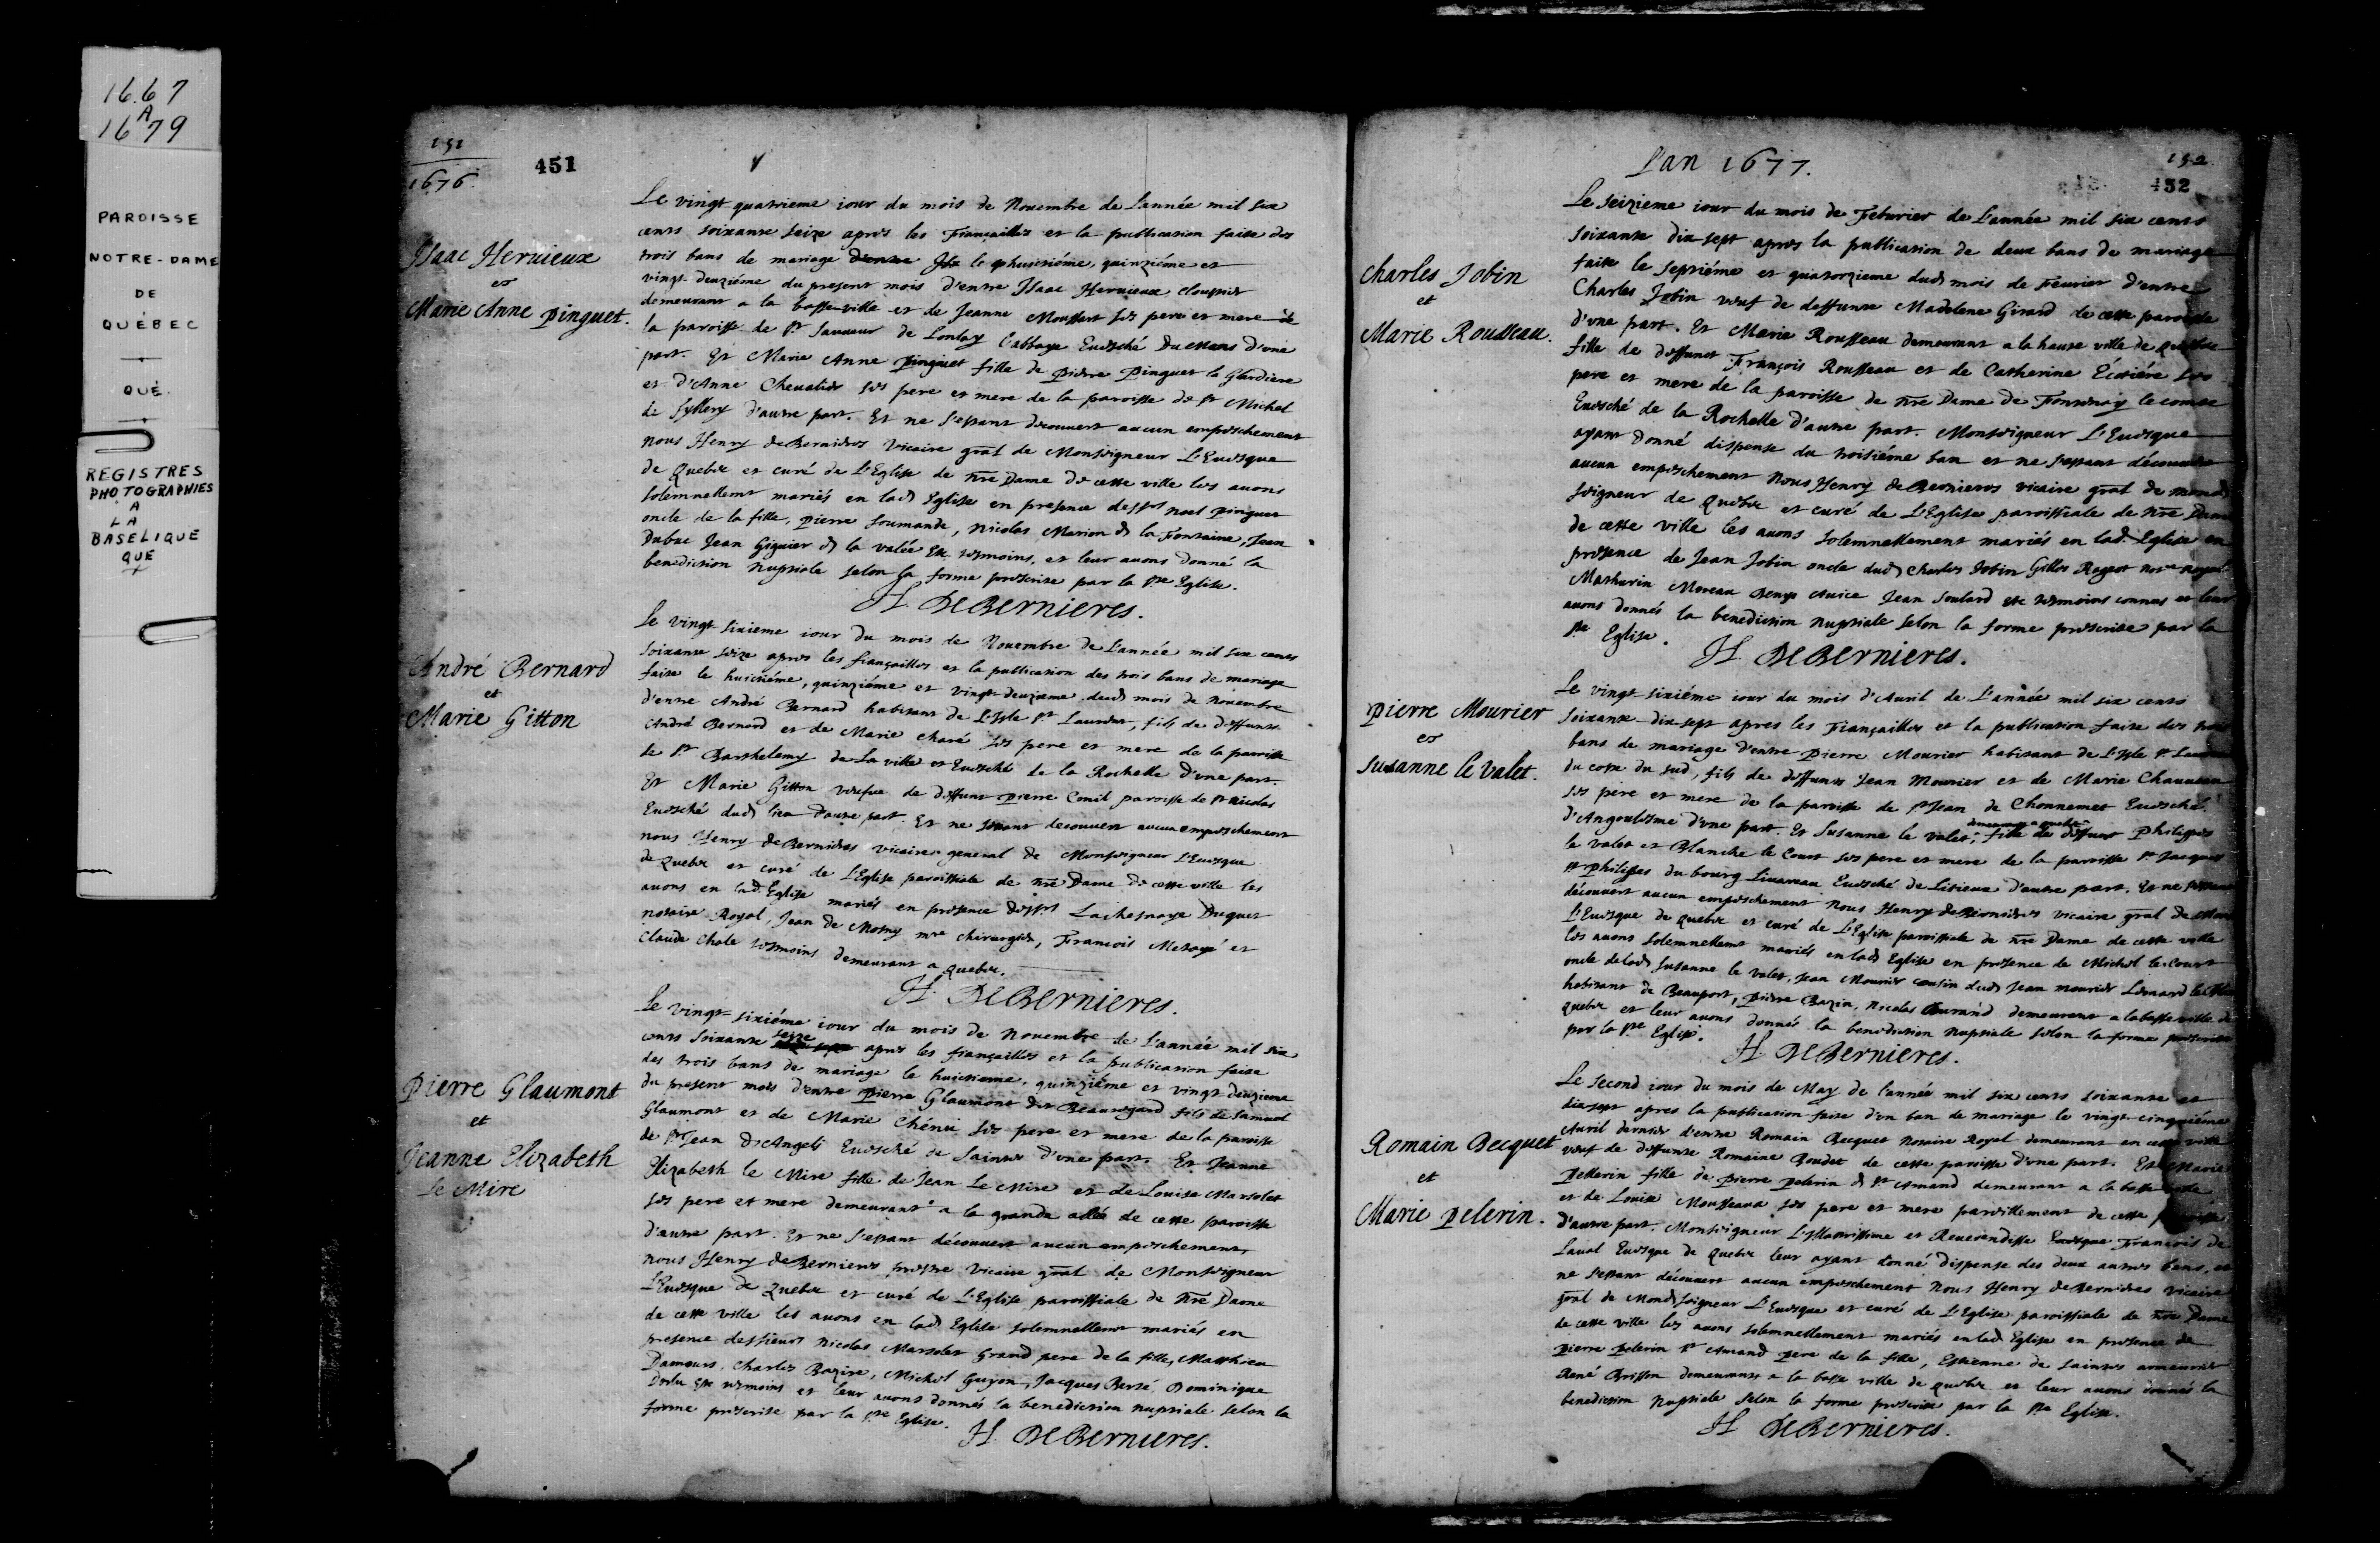 1667
A
1679
PAROISSE
NOTRE-DAME
DE
QUÉBEC
QUÉ.
REGISTRES
PHOTOGRAPHIES
A
LA
BASELIQUE
QUE
151
1676.
451
Isaac Heruieux
et
Marie Anne Pinguet.
Le vingt quatrieme iour du mois de Nouembre de L'année mil six
cents soixante seize apres les Fiançailles et la publication faite des
trois bans de mariage d'entre Isa le huictiéme, quinziéme et
vingt-deuziéme du present mois d'entre Isaac Heruieux
demeurant a la basse-ville et de Jeanne Moussart ses pere et mere de
la paroisse de St Sauueur de Lonlay l'abbaye Euesché Du Mans d'une
part. Et Marie Anne Pinguet fille de Pierre Pinguet la Glardiere
et d'Anne Cheualier ses pere et mere de la paroisse de St Michel
de Syllery d'autre part. Et ne s'estant decouuert aucun empeschement
nous Henry deBernieres Vicaire gnal de Monseigneur L'Euesque
de Quebec et curé de L'Eglise de nre Dame de cette ville les auons
solemnellemt mariés en lad Eglise en presence des srs noel Pinguet
oncle de la fille, Pierre Soumande, Nicolas Marion de la Fontaine, Jean
Dubuc Jean Giguier de la valée &c tesmoins, et leur auons donné la
benediction Nuptiale selon la forme prescrite par la Ste Eglise.
H. DeBernieres.
André Bernard
et
Marie Gitton
Le vingt sixieme iour du mois de Nouembre de L'année mil six cents
soixante seize apres les fiançailles et la publication des trois bans de mariage
faite le huictiéme, quinziéme et vingt-deuzieme dud mois de Nouembre
d'entre André Bernard habitant de L'Isle St Laurent, fils de deffunts
André Bernard et de Marie charé ses pere et mere de la paroisse
de St Barthelemy de La ville et Euesché de la Rochelle d'une part.
Et Marie Gitton veufue de deffunt Pierre Conil paroisse de St Nicolas
Euesché dud lieu d'autre part. Et ne s'estant decouuert aucun empeschement
nous Henry deBernieres vicaire general de Monseigneur L'Euesque
de Quebec et curé de L'Eglise paroissiale de nre Dame de cette ville les
auons en lad. Eglise mariés en presence des srs Lachesnaye Duquet
notaire Royal, Jean de Mosny mre chirurgien, Francois Metayé et
Claude Chale tesmoins demeurant a Quebec.
H. DeBernieres.
Pierre Glaumont
et
Jeanne Elizabeth
Le Mire
Le vingt-sixiéme iour du mois de Nouembre de L'année mil six
cents soixante seze apres les fiançailles et la publication faite
des trois bans de mariage le huictieme, quinziéme et vingt-deuzieme
du present mois d'entre Pierre Glaumont dit Beauregard fils de Samuel
Glaumont et de Marie Chénu ses pere et mere de la paroisse
de St Jean d'Angeli Euesché de Saintes d'une part. Et Jeanne
Elizabeth le Mire fille de Jean Le Mire et de Louise Marsolet
ses pere et mere demeurant a la grande allée de cette paroisse
d'autre part. Et ne s'estant découuert aucun empeschement,
nous Henry deBernieres prestre Vicaire gnal de Monseigneur
L'Euesque de Quebec et curé de L'Eglise paroissiale de nre Dame
de cette ville les auons en lad Eglise solemnellemt mariés en
presence des sieurs Nicolas Marsolet Grand pere de la fille, Matthieu
Damours, Charles Bazire, Michel Guyon, Jacques Berté, Dominique
&c tesmoins et leur auons donnés la benediction nuptiale selon la
forme prescrite par la Ste Eglise.
H. DeBernieres.
L'an 1677.
152.
452
Charles Jobin
et
Marie Rousseau.
Le seizieme iour du mois de Feburier de L'année mil six cents
soixante dix sept apres la publication de deux bans de mariage
faite le septiéme et quatorzieme dud mois de Feurier d'entre
Charles Jobin veuf de deffunte Madelene Girard de cette paroisse
d'une part. Et Marie Rousseau demeurant a la haute ville de Quebec
fille de deffunct François Rousseau et de Catherine Ecotiére ses
pere et mere de la paroisse de nre Dame de Fontenay le comte
Euesché de la Rochelle d'autre part. Monseigneur L'Euesque
ayant donné dispense du troisiéme ban et ne s'estant découuert
aucun empeschement nous Henry deBernieres vicaire gnal de mond
seigneur de Quebec et curé de L'Eglise paroissiale de nre Dame
de cette ville les auons solemnellement mariés en lad. Eglise en
presence de Jean Jobin oncle dud Charles Jobin Gilles Rageot notre royal
Mathurin Moreau Denys Auice Jean Soulard &c tesmoins connus et leur
auons donnés la benediction nuptiale selon la forme prescrite par la
Ste Eglise.
H. DeBernieres.
Pierre Mourier
et
Susanne le Valet.
Le vingt-sixiéme iour du mois d'Auril de L'année mil six cents
soixante-dix sept apres les Fiançailles et la publication faite des trois
bans de mariage d'entre Pierre Mourier habitant de L'Isle St Laurent
du coste du sud, fils de deffunts Jean Mourier et de Marie Chauueau
ses pere et mere de la paroisse de St Jean de Chonnemet Euesché
d'Angoulesme d'une part. Et Susanne le Valet, demeurant a Quebec fille de deffunct Philippes
le Valet et Blanche le Court ses pere et mere de la paroisse St Jacques
St Philippes du bourg Liuareau Euesché de Lisieux d'autre part. Et ne s'estant
découuert aucun empeschement nous Henry deBernieres vicaire gnal de Mons
L'Euesque de Quebec et curé de L'Eglise paroissiale de nre Dame de cette ville
les auons solemnellemt mariés en lad Eglise en presence de Michel le Court
oncle de lad Susanne le Valet, Jean Mourier cousin dud Jean mourier Leonard
habitant de Beauport, Pierre Bazin, Nicolas Durand demeurant a la basse-ville de
Quebec et leur auons donnés la benediction nuptiale selon la forme prescrite
par la Ste Eglise.
H. DeBernieres.
Romain Becquet
et
Marie Pelerin.
Le second iour du mois de May de l'année mil six cents soixante et
dix sept apres la publication faite d'un ban de mariage le vingt-cinquiéme
Auril dernier d'entre Romain Becquet Notaire Royal demeurant en cette ville
veuf de deffunte Romaine Boudet de cette paroisse d'une part. Et Marie
Pellerin fille de Pierre Pelerin de St Amand demeurant a la basse ville
et de Louise Mousseaux ses pere et mere pareillement de cette paroisse
d'autre part. Monseigneur L'Illustrissime et Reuerendisse Euesque Francois de
Laual Euesque de Quebec leur ayant donné dispense des deux autres bans, et
ne s'estant découuert aucun empeschement nous Henry deBernieres vicaire
gnal de Mond seigneur L'Euesque et curé de L'Eglise paroissiale de nre Dame
de cette ville les auons solemnellement mariés en lad Eglise en presence de
Pierre Pelerin St Amand pere de la fille, Estienne de Saintes armeurier
René Brisson demeurants a la basse ville de Quebec et leur auons donnés la
benediction Nuptiale selon la forme prescrite par la Ste Eglise.
H. DeBernieres.